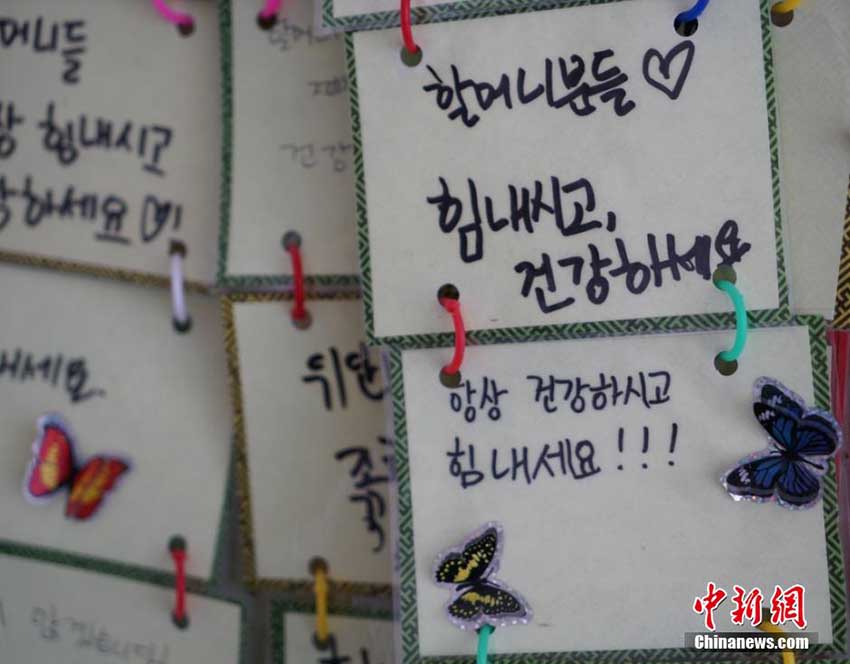 머니들
힘내시고
하세요
할머니분들 ♡
힘내시고,
건강하세요
건강
내세요
위단
항상 건강하시고
힘내세요!!!
中新网
Chinanews.com